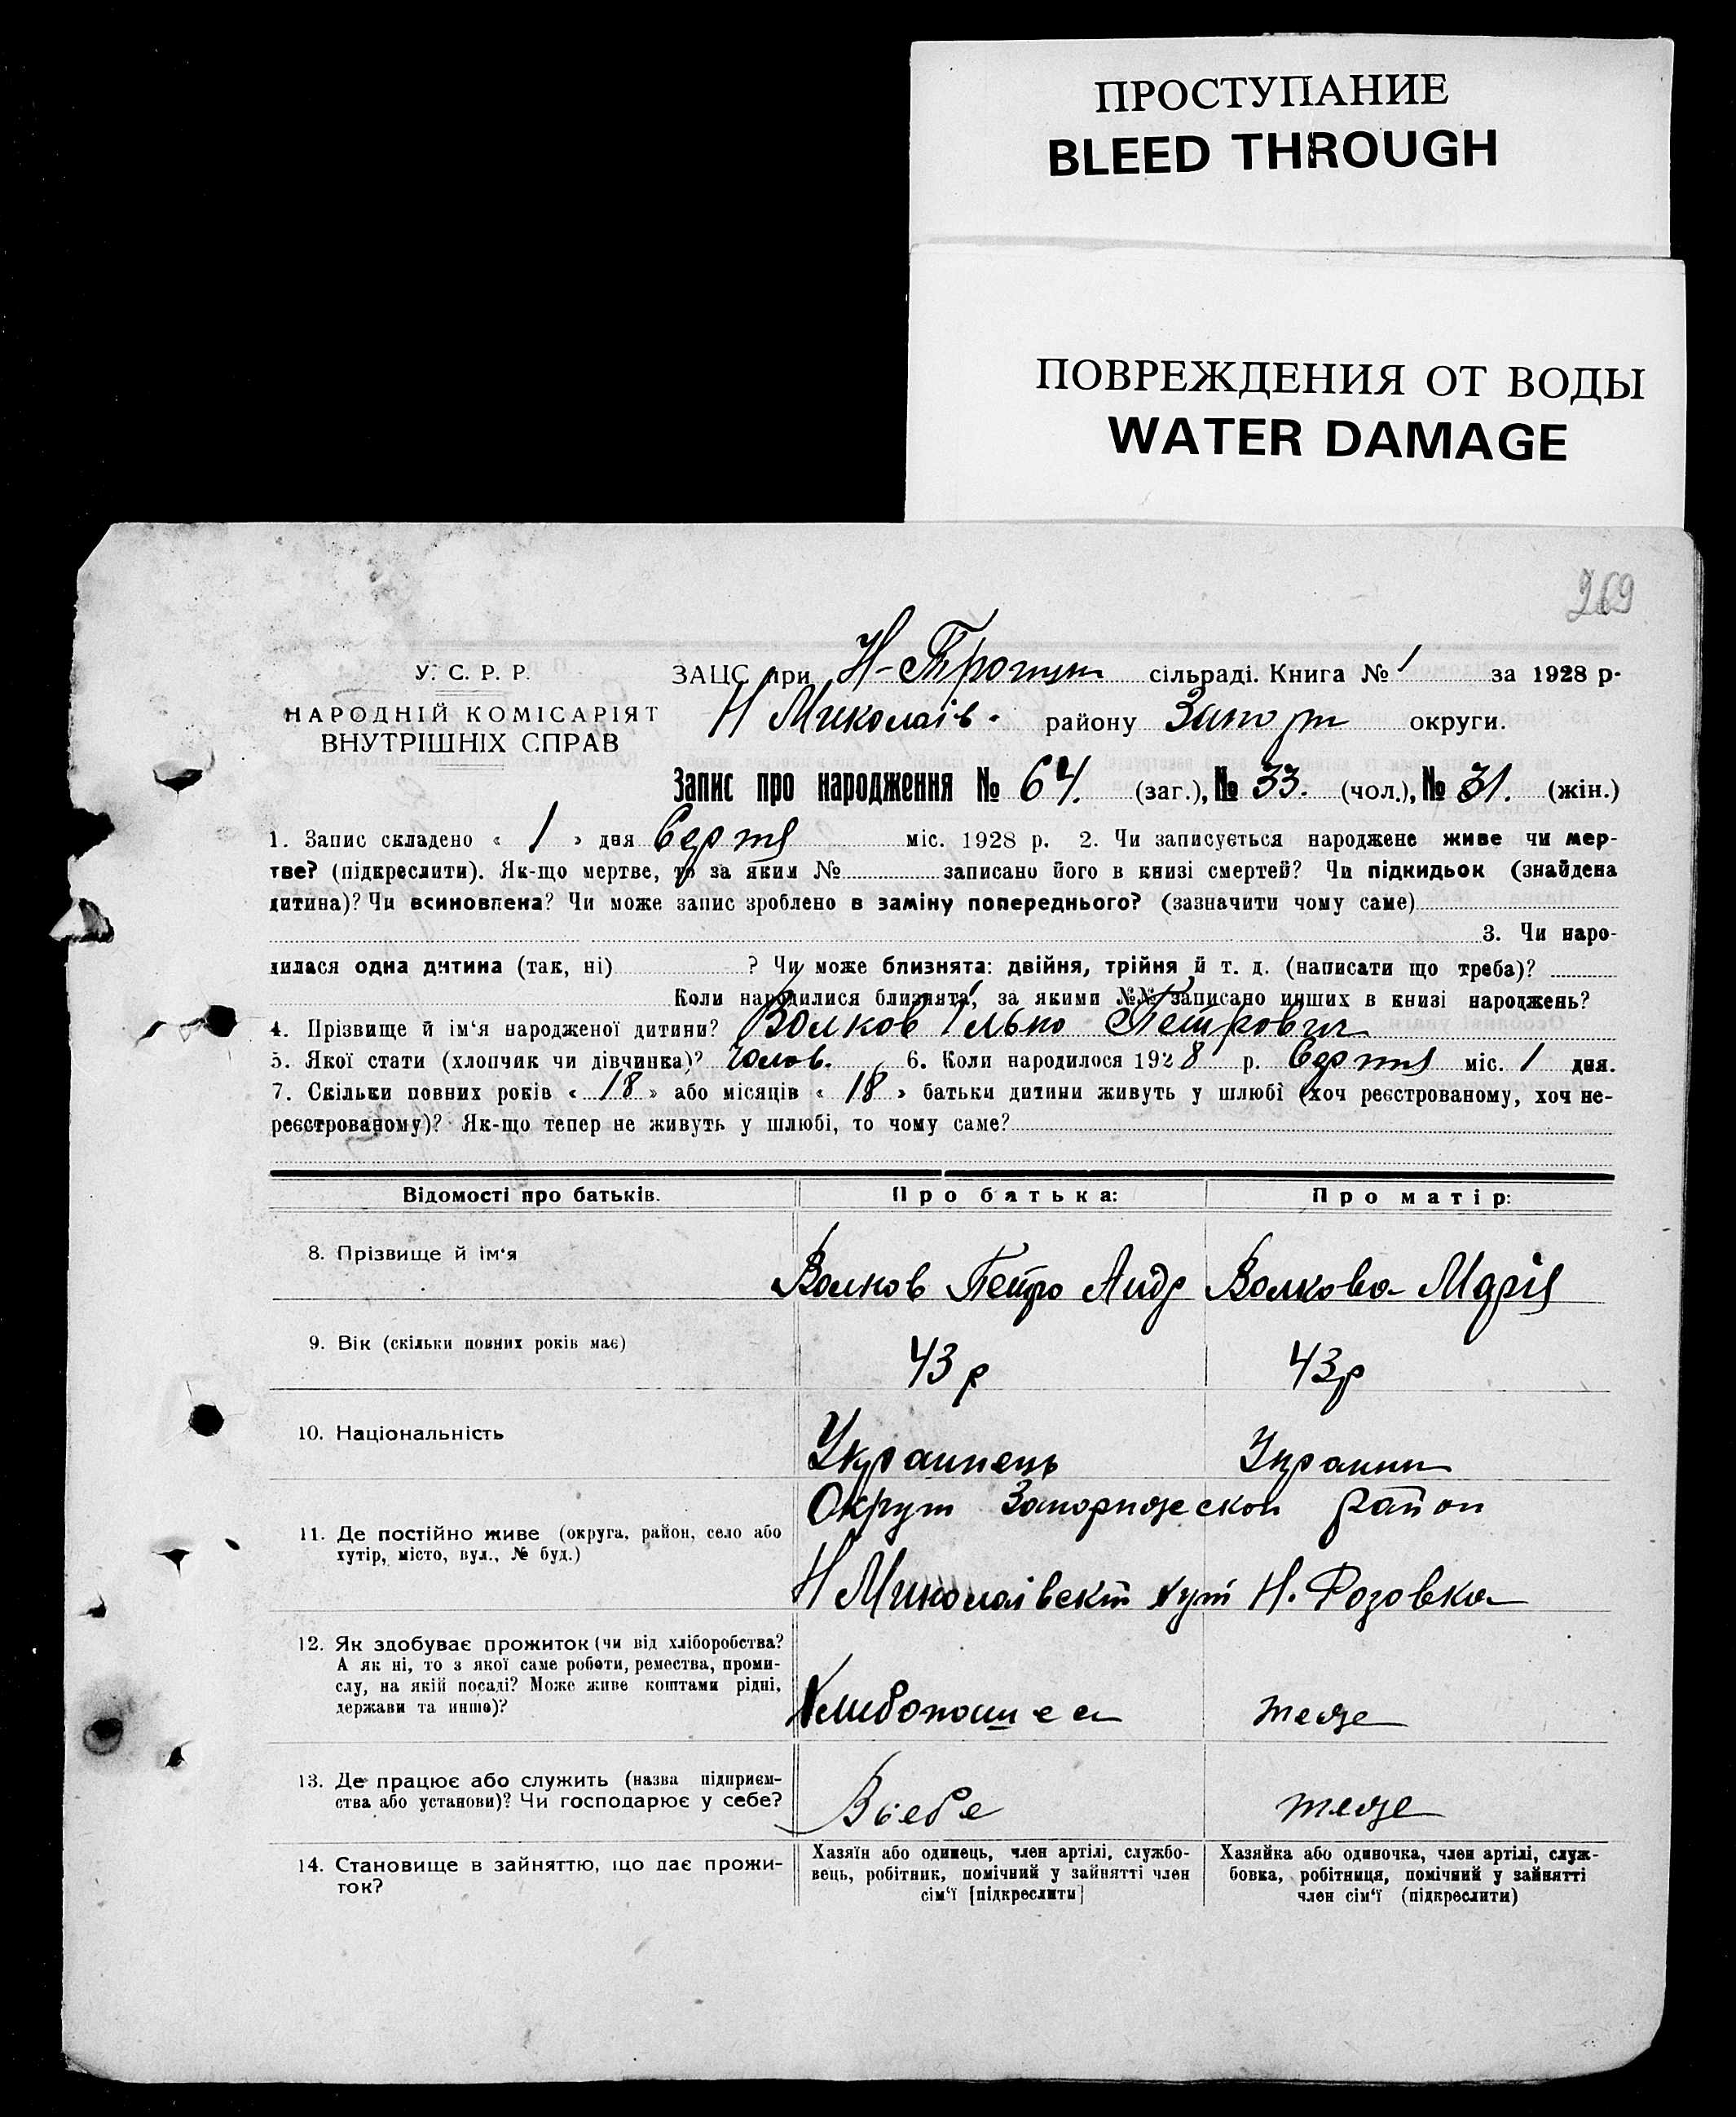 ПРОСТУПАНИЕ
BLEED THROUGH
ПОВРЕЖДЕНИЯ ОТ ВОДЫ
WATER DAMAGE
269
У. С. Р. Р.
НАРОДНІЙ КОМІСАРІЯТ
ВНУТРІШНІХ СПРАВ
ЗАЦС при Н-Троицк сільраді. Книга № 1 за 1928 р.
Н Миколаів. району Запорт округи.
Запис про народження № 64. (заг.), № 33. (чол.), № 31. (жін.)
1. Запис складено « 1 » дня Серпня міс. 1928 р. 2. Чи записується народжене живе чи мер-
тве? (підкреслити). Як-що мертве, то за яким № записано його в книзі смертей? Чи підкидьок (знайдена
дитина)? Чи всиновлена? Чи може запис зроблено в заміну попереднього? (зазначити чому саме)
3. Чи наро-
дилася одна дитина (так, ні) ? Чи може близнята: двійня, трійня й т. д. (написати що треба)?
Коли народилися близнята, за якими №№ записано инших в книзі народжень?
4. Прізвище й ім‘я народженої дитини? Волков Ілько Петрович
5. Якої стати (хлопчик чи дівчинка)? Чолов. 6. Коли народилося 1928 р. Серпня міс. 1 дня.
7. Скільки повних років « 18 » або місяців « 18 » батьки дитини живуть у шлюбі (хоч реєстрованому, хоч не-
реєстрованому)? Як-що тепер не живуть у шлюбі, то чому саме?
Відомості про батьків. Про батька: Про матір:
8. Прізвище й ім‘я Волков Петро Андр Волкова Марія
9. Вік (скільки повних років має) 43 р 43 р
10. Національність Украинець Украин
Округ Запорижескои район
11. Де постійно живе (округа, район, село або
хутір, місто, вул., № буд.)
Н Миколаівскій хут Н. Розовка
12. Як здобуває прожиток (чи від хліборобства?
А як ні, то з якої саме роботи, ремества, проми-
слу, на якій посаді? Може живе коштами рідні,
держави та инше)?
Хлибопашеса теже
13. Де працює або служить (назва підприєм-
ства або установи)? Чи господарює у себе?
Всебе теже
14. Становище в зайняттю, що дає прожи-
ток?
Хазяїн або одинець, член артілі, службо-
вець, робітник, помічний у зайнятті член
сім‘ї [підкреслити]
Хазяйка або одиночка, член артілі, служ-
бовка, робітниця, помічний у зайнятті
член сім‘ї (підкреслити)